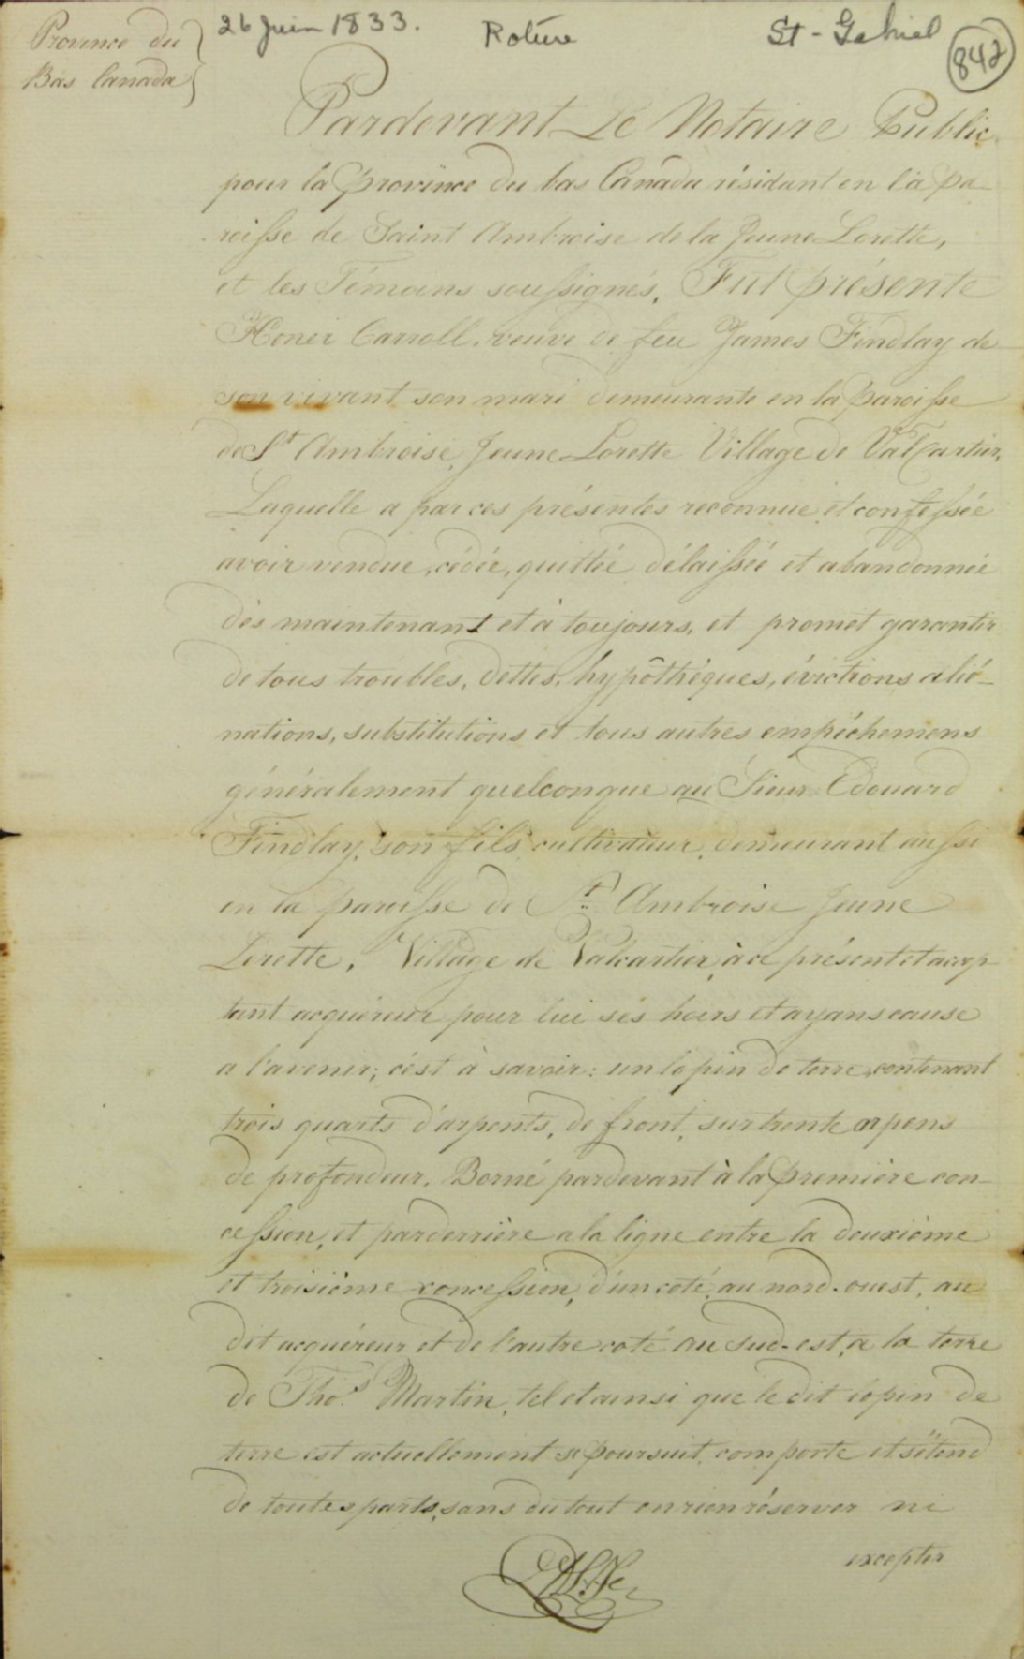 Province du
Bas Canada
26 Juin 1833.
Roture
St-Gabriel
842
Pardevant Le Notaire Public
pour la province du bas Canada résidant en la pa-
roisse de Saint Ambroise de la Jeune Lorette,
et les Témoins soussignés, Fut présente
Honer Carroll, veuve de feu James Findlay de
son vivant son mari demeurante en la paroisse
de St Ambroise, Jeune Lorette Village de ValCartier,
Laquelle a par ces présentes reconnue et confessée
avoir vendue, cédée, quittée délaissée et abandonnée
dès maintenant et à toujours, et promet garantir
de tous troubles, dettes, hypôthéques, évictions alié-
nations, substitutions et tous autres empéchemens
généralement quelconque au Sieur Edouard
Findlay, son fils, cultivateur, demeurant aussi
en la paroisse de St Ambroise Jeune
Lorette, Village de Valcartier, à ce présent et accep-
tant acquéreur pour lui ses hoirs et ayans cause
a l'avenir; c'est à savoir: un lopin de terre contenant
trois quarts d'arpents, de front, sur trente arpens
de profondeur. Borné pardevant à la première con-
cession, et parderrière a la ligne entre la deuxième
et troisième concession, d'un coté, au nord-ouest, au
dit acquéreur et de l'autre coté au sud-est, a la terre
de Thos. Martin, tel et ainsi que le dit lopin de
terre est actuellement se poursuit, comporte et s'étend
de toutes parts, sans du tout en rien réserver ni
excepter